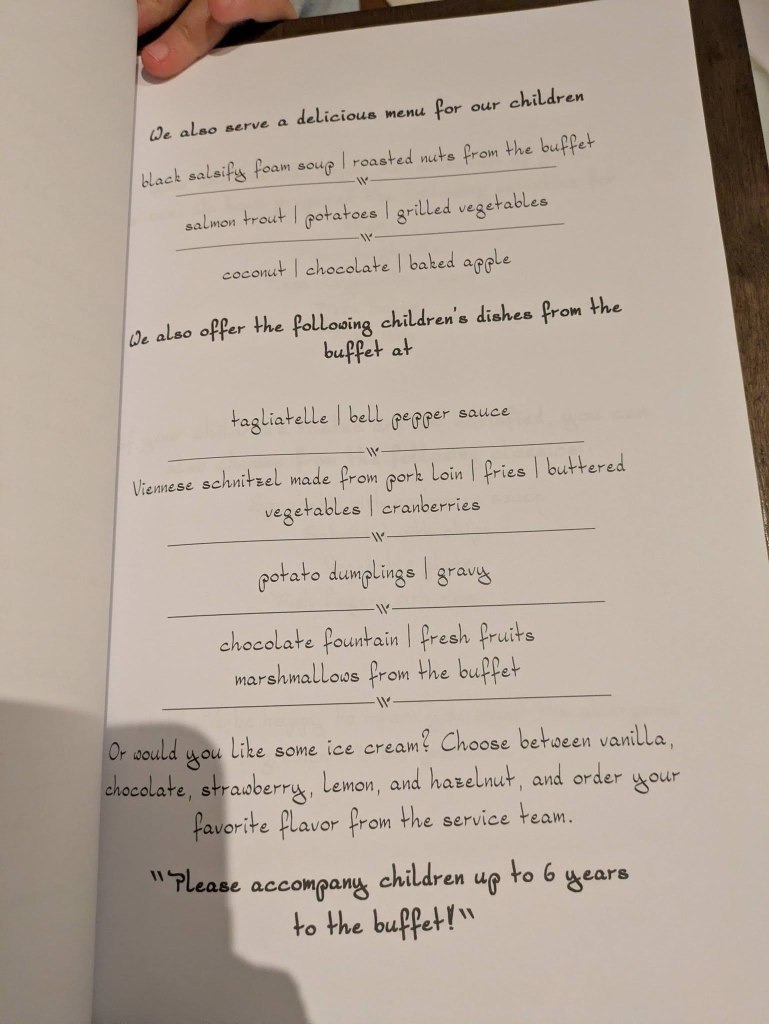 We also serve a delicious menu for our children
black salsify foam soup | roasted nuts from the buffet
salmon trout | potatoes | grilled vegetables
coconut | chocolate | baked apple
We also offer the following children's dishes from the
buffet at
tagliatelle | bell pepper sauce
Viennese schnitzel made from pork loin | fries | buttered
vegetables | cranberries
potato dumplings | gravy
chocolate fountain | fresh fruits
marshmallows from the buffet
Or would you like some ice cream? Choose between vanilla,
chocolate, strawberry, lemon, and hazelnut, and order your
favorite flavor from the service team.
"Please accompany children up to 6 years
to the buffet!"